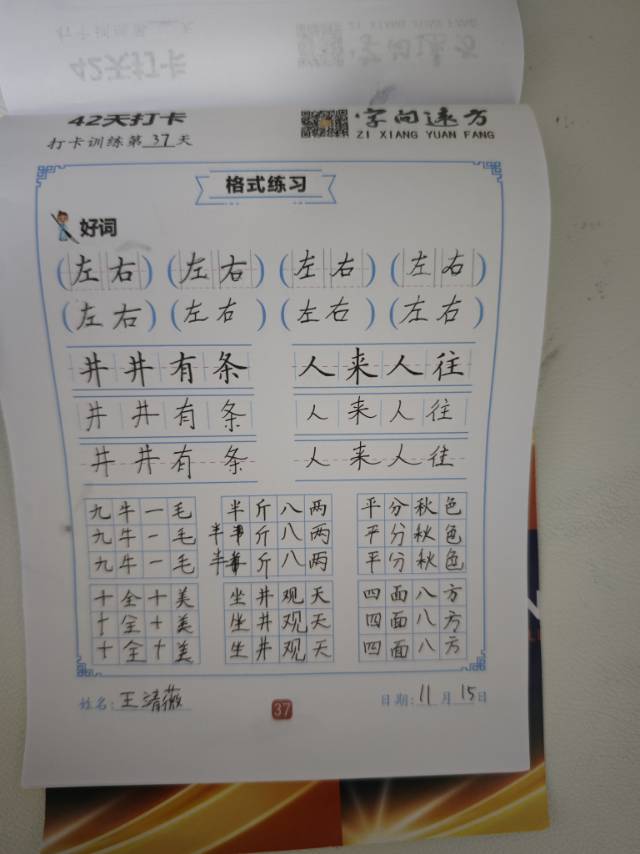 42天打卡
字向远方
42天打卡
字向远方
打卡训练第37天
ZI XIANG YUAN FANG
格式练习
好词
(左右) (左右) (左右) (左右)
(左右) (左右) (左右) (左右)
井井有条 人来人往
井井有条 人来人往
井井有条 人来人往
九牛一毛 半斤八两 平分秋色
九牛一毛 半斤八两 平分秋色
九牛一毛 半斤八两 平分秋色
十全十美 坐井观天 四面八方
十全十美 坐井观天 四面八方
十全十美 坐井观天 四面八方
姓名:王清薇 37 日期:11月15日